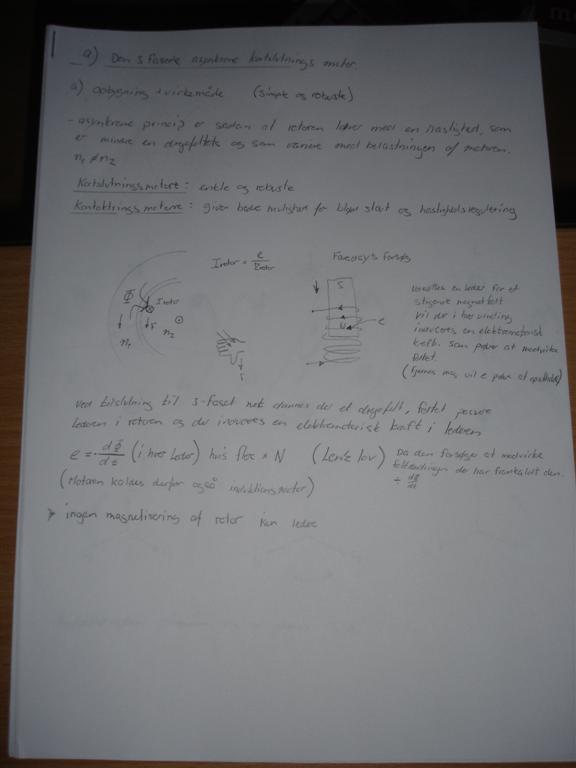 a) Den 3 fasede asynkrone kortslutnings motor.
a) opbygning + virkemåde (simple og robuste)
- asynkrone princip er sådan at rotoren løber med en hastighed, som
er mindre en drejefeltets og som varierer med belastningen af motoren.
n1 ≠ n2
Kortslutningsmotore: enkle og robuste
Kontaktringsmotorre: giver bedre mulighed for blød start og hastighedsregulering
Irotor = e / Zrotor
Faradays forsøg
Φ Irotor
F
n1 n2
F
S
N
e
en leder for et
stigende magnetfelt
vil der i hver vinding
induceres en elektromotorisk
kraft. som prøver at modvirke
feltet.
(fjernes mag. vil e prøve at opretholde)
Ved tilslutning til 3-faset net dannes der et drejefelt, feltet
lederen i rotoren og der induceres en elektromotorisk kraft i lederen
e = - dΦ / dt (i hver leder) hvis flere × N (Lenz lov) Da den forsøger at modvirke
feltændringen der har frembragt den.
÷ dΦ / dt
(Motoren kaldes derfor også induktionsmotor)
ingen magnetisering af rotor kun ledere